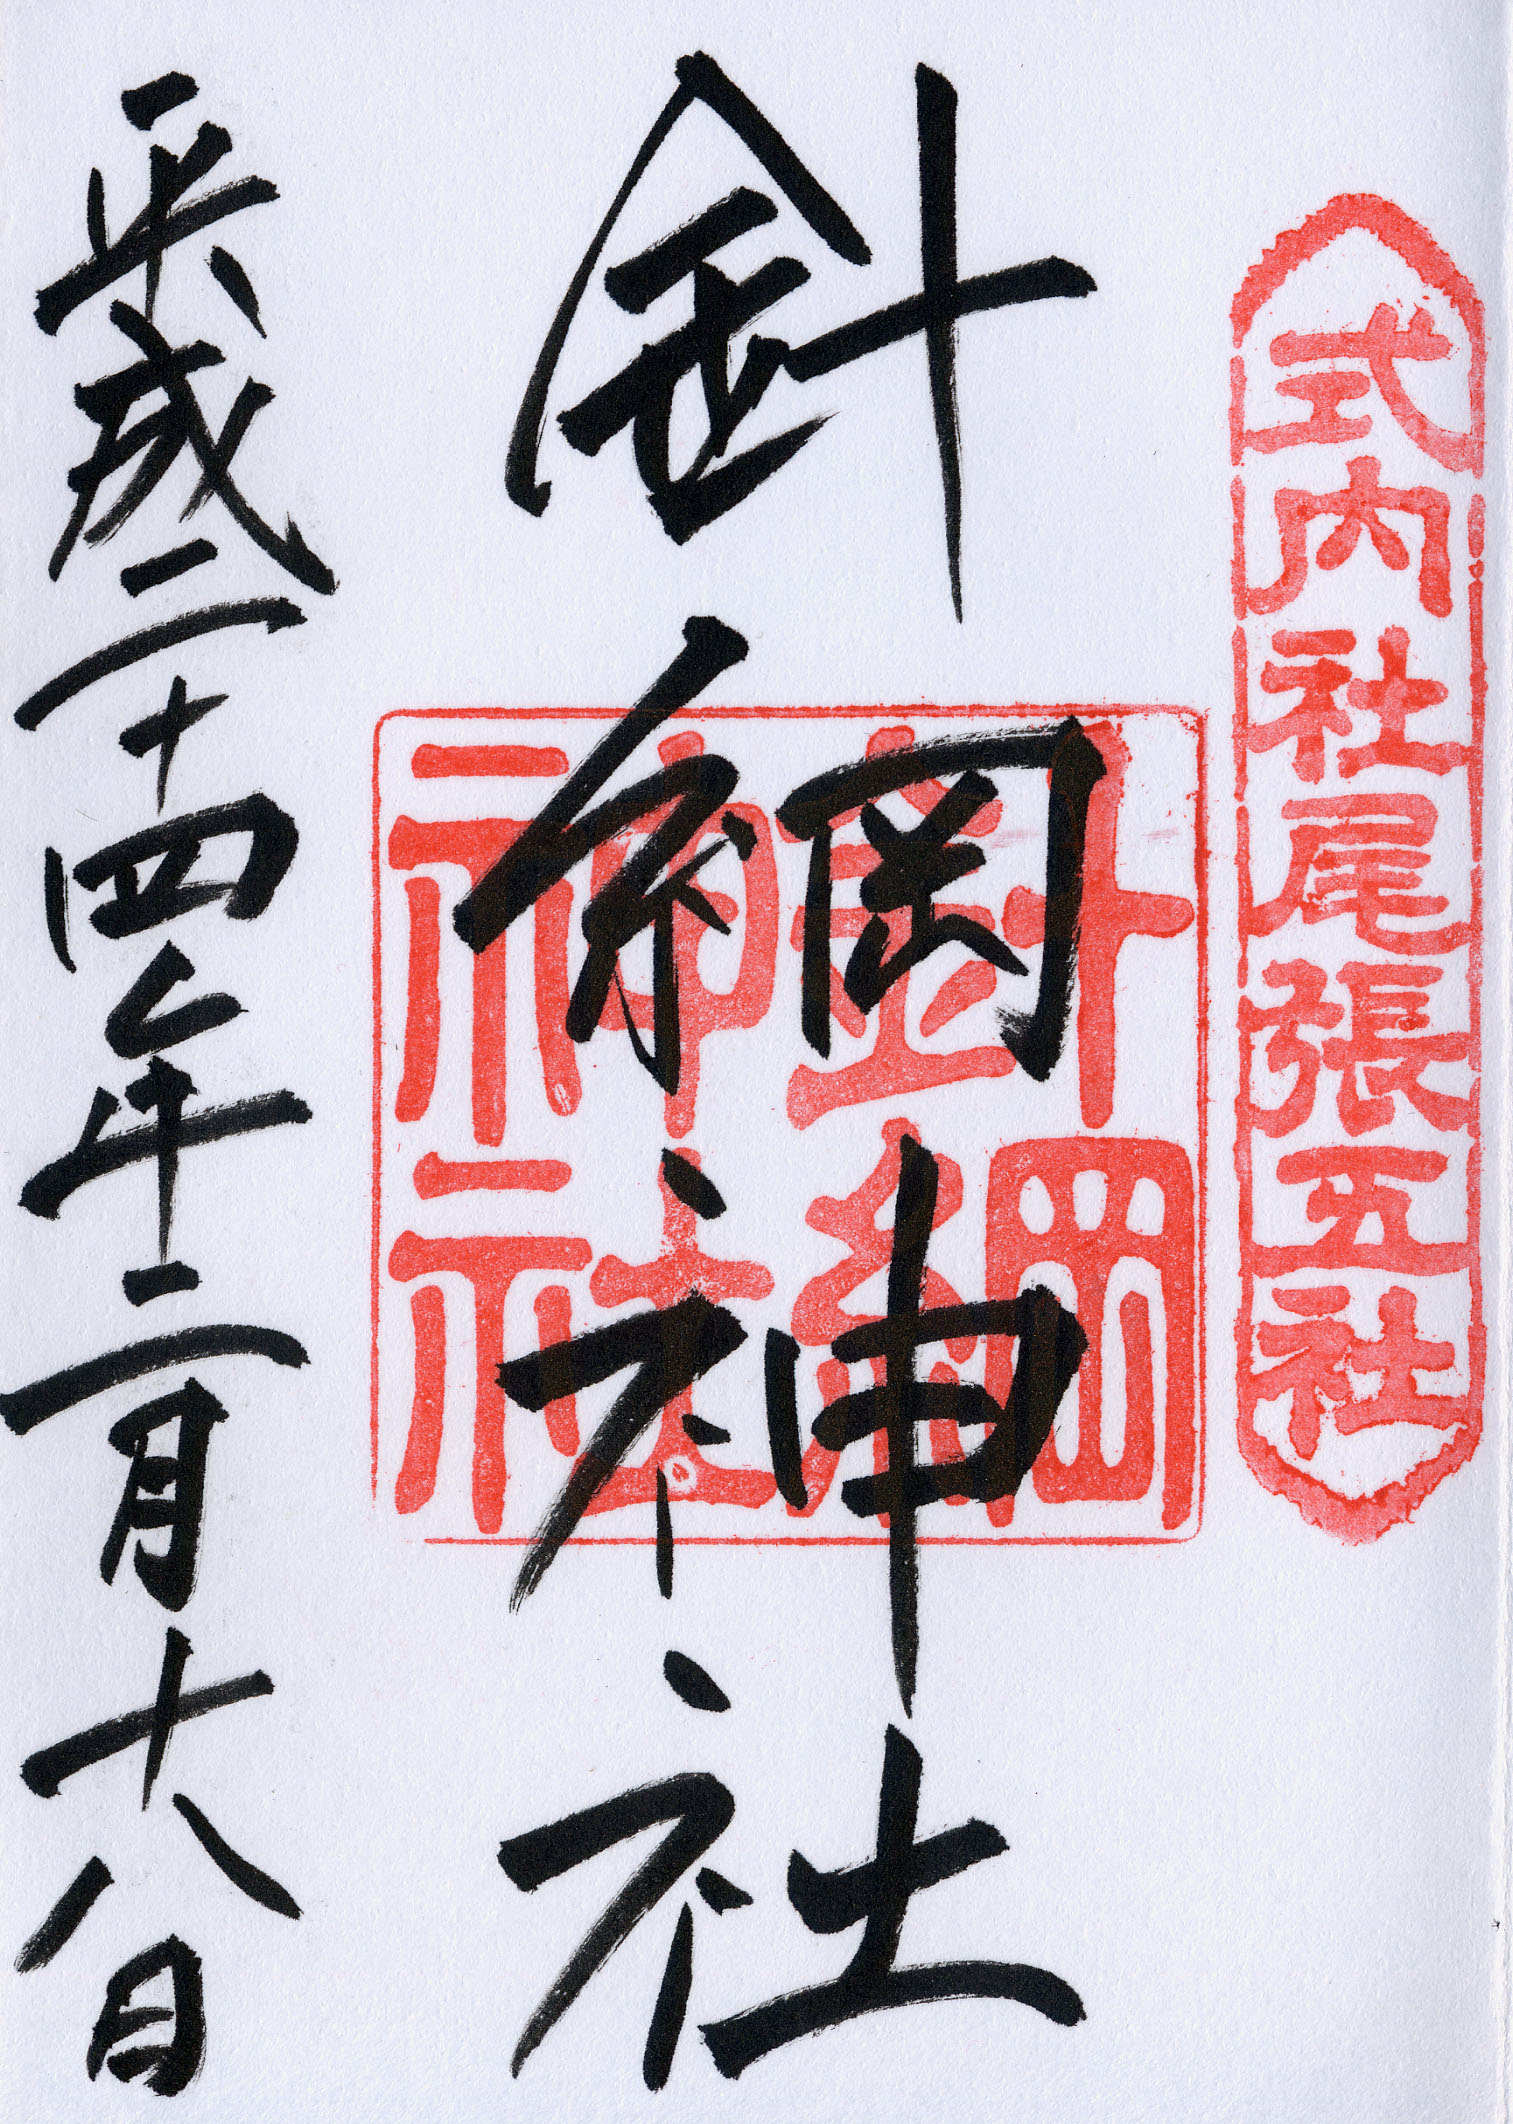 式内社尾張五社
針綱神社
針綱
神社
平成二十四年二月十八日